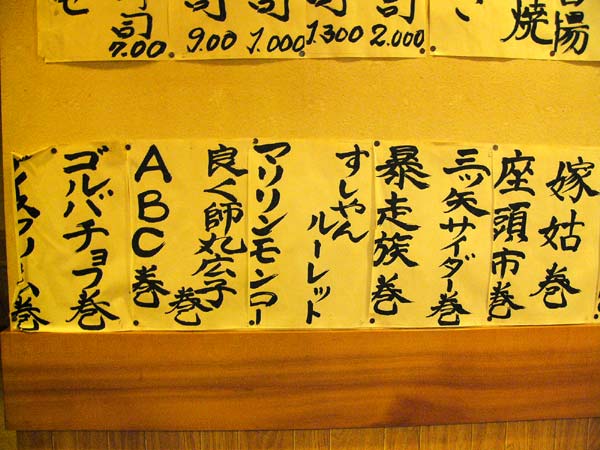 湯
焼
司
2.000
司
1.300
司
1.000
司
9.00
司
7.00
嫁姑巻
座頭市巻
三ツ矢サイダー巻
暴走族巻
すしやん
ルーレット
マリリンモンロー
良く師丸広子
巻
ABC巻
ゴルバチョフ巻